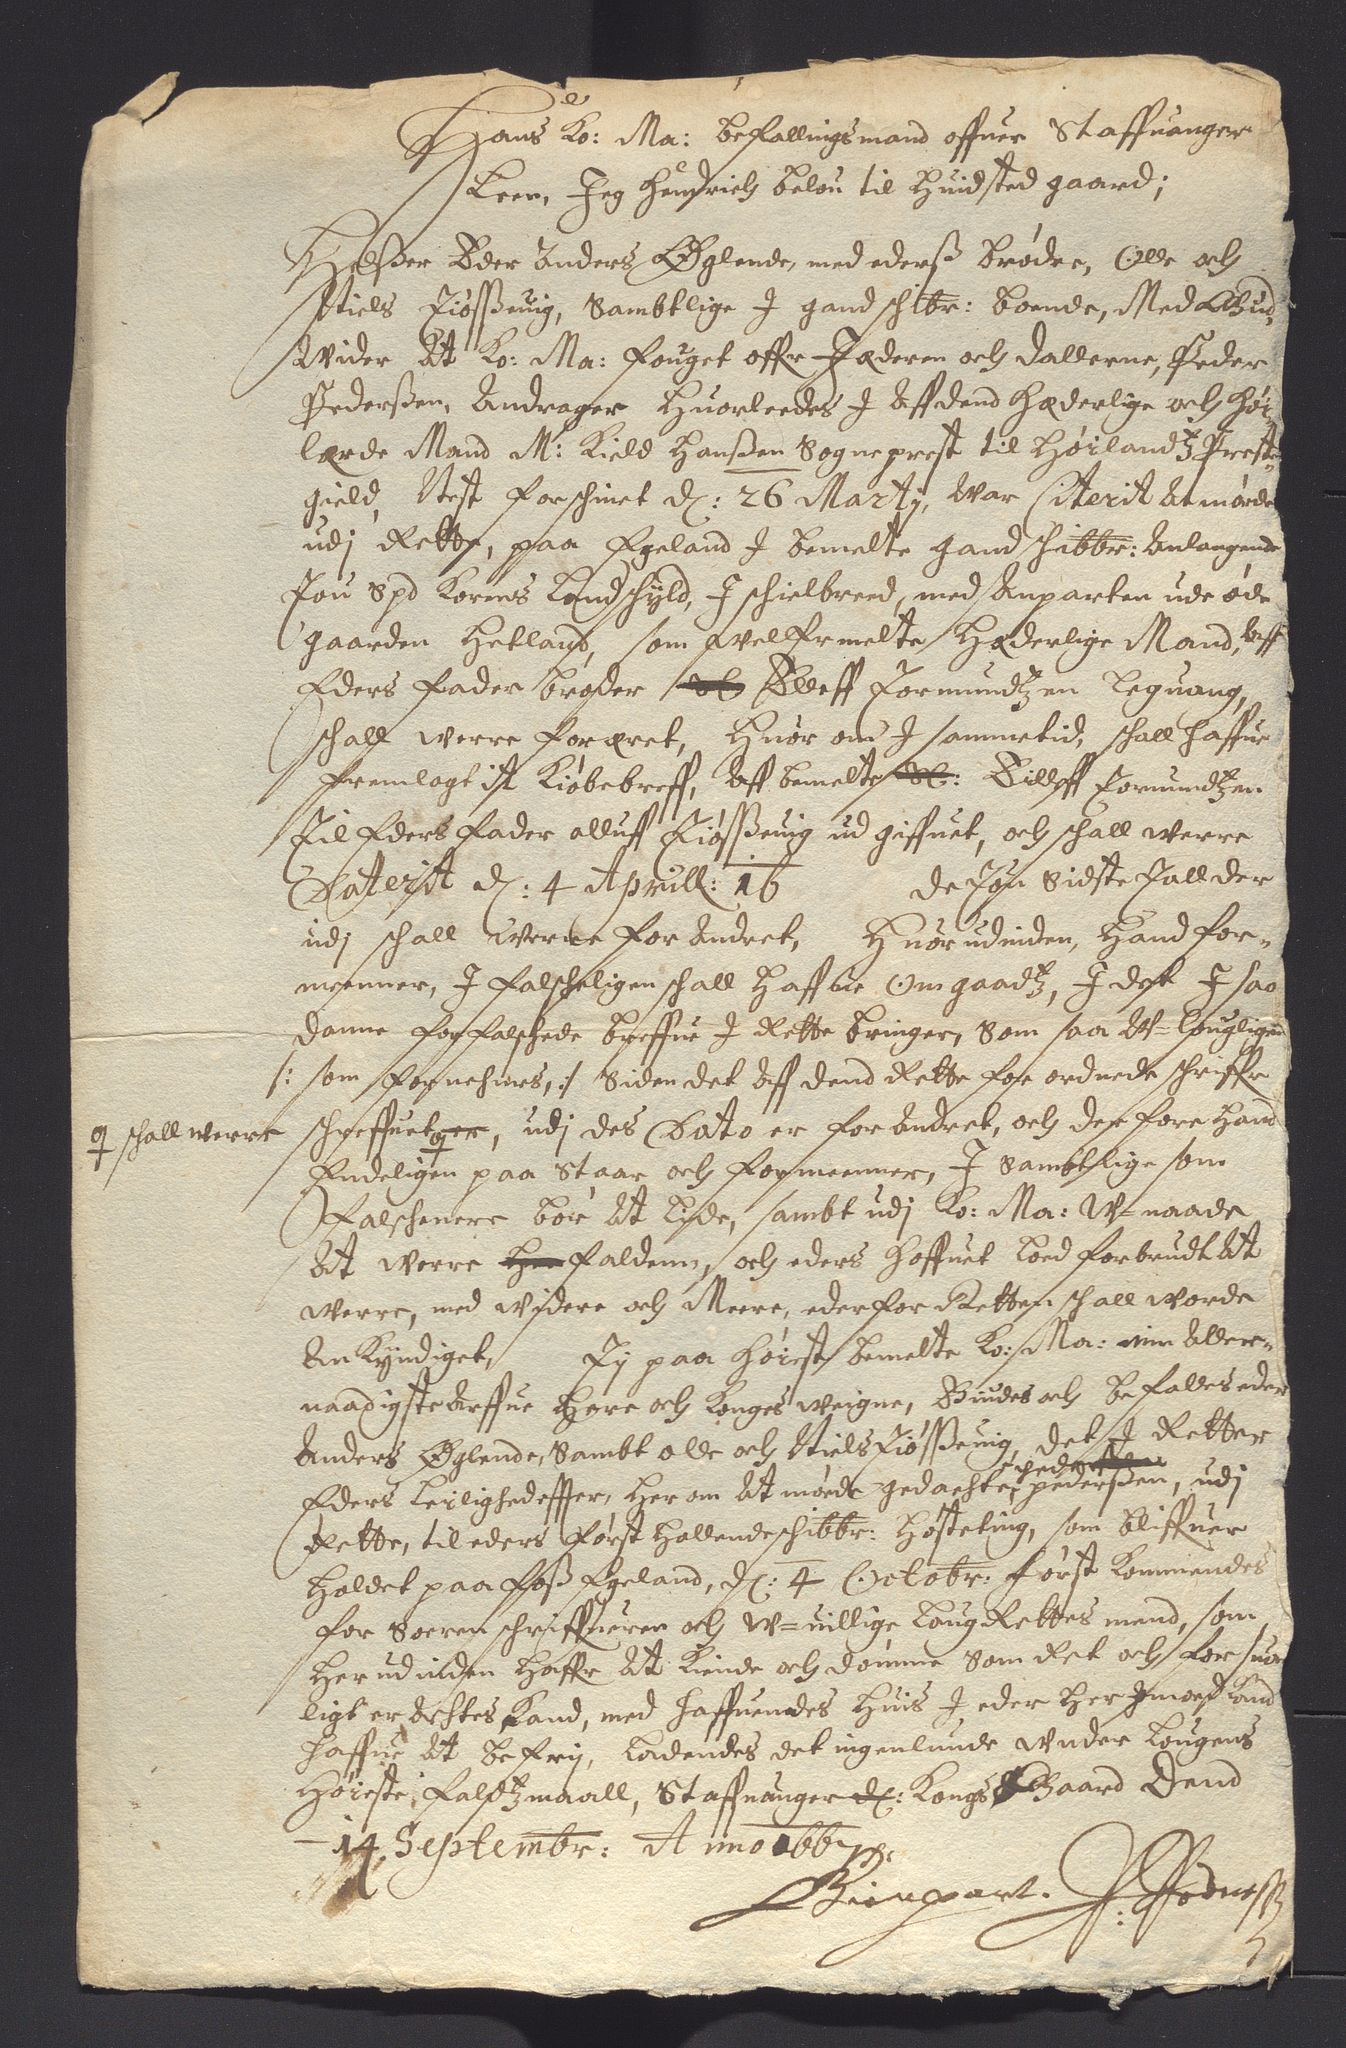 Hans Ko: Ma: befallingsmand offuer Staffuanger
Leen, Jeg Hendrich Belou til Huidsted gaard;
Hilsser Eder Anders Øglende, med ederss brødre, Olle och
Niels Tiøssuig, Sambtlige J gand schibr: boende, Med Gud,
Wider At Ko: Ma: fouget offr Jæderen och Dallerne, Peder
Pederssen, Andrager Huorleedes J Aff dend Hæderlige och høi-
lærde Mand M: Kield Hanssen Sogneprest til Høilandtz Preste-
gield, Nest forschinet dn: 26 Martij, War Citerit At møde
udj Rette, paa Egeland J bemelte Gand schibbr: Anlangende
Tou Spd Korns Landschyld, J schielbreed, med Anparten ude øde
gaarden Hetland, som welfermelte Hæderlige Mand, Aff
Eders fader broder Elleff Tormundtzen Leguang,
schall werre foræret, Huor om J sammetid, schall haffue
fremlagt it Kiøbebreff, Aff bemelte Eilleff Tormundtzen
Til Eders fader olluff Tiøssuig ud giffuet, och schall werre
Daterit dn: 4 Aprill: 16 de Tou Sidste Tall der
udj schall werre for Andret, Huorudinden, Hand for-
meener, J falscheligen schall haffue Omgaadtz, J det J saa
danne forfalschede breffue J Rette bringer, Som saa W-lougligen
/: som fornehmes, :/ Siden det Aff dend Rette for ordnede schriffr
schreffuet er, udj des Dato er for Andret, och derfore Hand
ꝗ schall werre
Endeligen paa Staar och formeener, J Sambtlige som
falschenere bør At Lide, sambt udj Ko: Ma: W-naade
At werre falden, och eders hoffuet Loed forbrudt At
werre, med widere och Meere, eder for Retten schall worde
An Kyndiget, Tj paa høiest bemelte Ko: Ma: min Aller-
naadigste Arffue Herre och Konges weigne, Biudes och befalles eder
Anders Øglende, Sambt olle och Niels Tiøssuig, det J Retter
Eders Leilighed effter, Her om At møde gedachte peder pederssen, udj
Rette, til eders først hollende schibbr: Høsteting, som bliffuer
Holdet paa Foss Egeland, dn: 4 Octobr: først Kommendes
for Soeren schriffueren och W-uillige Laug Rettes mend, som
Her udinden haffr At Kiende och dømme Som Ret och for suar
ligt er Achtes Kand, med haffuendes Huis J eder Her Jmoed kand
haffue At befrij, Ladendes det ingenlunde under Lougens
Høieste faldtzmaall, Staffuanger Kongs Gaard Dend
14. Septembr: Anno 166
Gienpart.